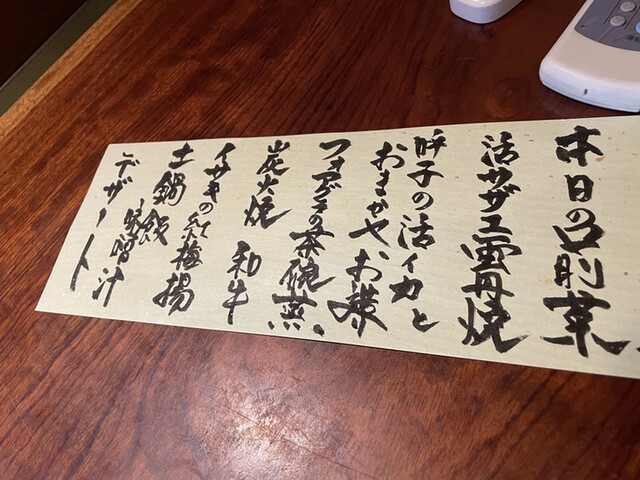 本日の口前菜
活サザエ雲丹焼
呼子の活イカと
おまかせお襟
フォアグラの茶碗蒸
炭火焼 和牛
イサキの紅梅揚
土鍋飯
味噌汁
デザート